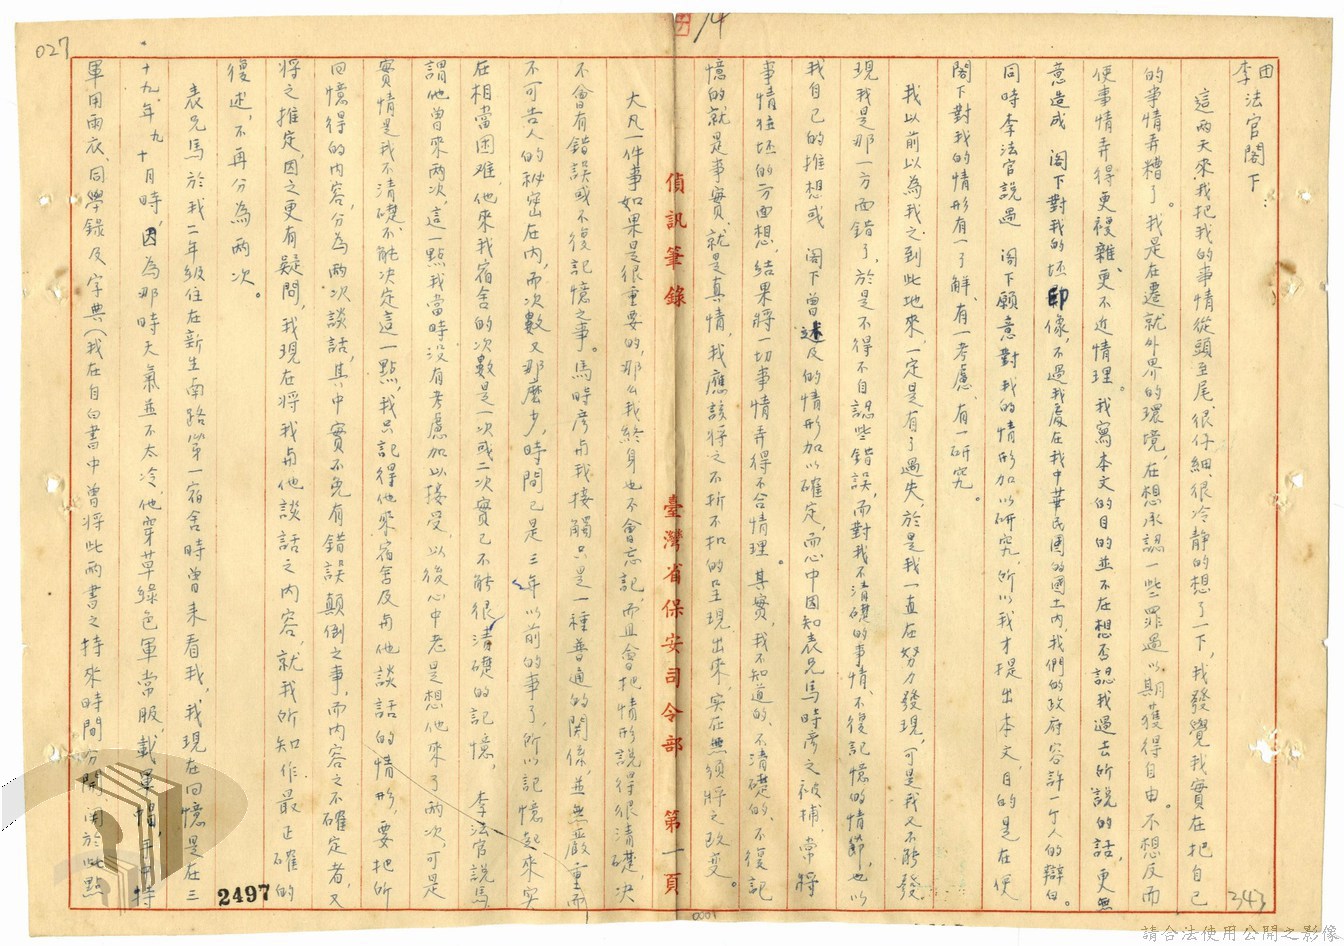 027
14
田
李法官閣下：
這兩天來我把我的事情從頭至尾，很仔細、很冷靜的想了一下，我發覺我實在把自己
的事情弄糟了。我是在遷就外界的環境，在想承認一些罪過以期獲得自由。不想反而
使事情弄得更複雜、更不近情理。我寫本文的目的並不在想否認我過去所說的話，更無
意造成　閣下對我的坯印像，不過我處在我中華民國的國土內，我們的政府容許一個人的辯白。
同時李法官說過　閣下願意對我的情形加以研究，所以我才提出本文，目的是在使
閣下對我的情形有一了解、有一考慮、有一研究。
我以前以為我之到此地來，一定是有了過失，於是我一直在努力發現，可是我又不能發
現我是那一方面錯了，於是不得不自認些錯誤，而對我不清礎的事情、不復記憶的情節，也以
我自己的推想或　閣下曾述及的情形加以確定，而心中因知表兄馬時彥之被捕，常將
事情往坯的方面想，結果將一切事情弄得不合情理。其實，我不知道的、不清礎的、不復記
憶的就是事實、就是真情，我應該將之不折不扣的呈現出來，實在無須將之改变。
大凡一件事如果是很重要的，那么我終身也不會忘記，而且會把情形說得很清礎，决
不會有錯誤或不復記憶之事。馬時彥與我接觸只是一種普通的関係，並無嚴重而
不可告人的秘密在內，而次數又那麼少，時間已是三年以前的事了，所以記憶起來实
在相當困难，他來我宿舍的次數是一次或二次實已不能很清礎的記憶，　李法官說馬
謂他曾來兩次，這一點我當時沒有考慮加以接受，以後心中老是想他來了兩次，可是
實情是我不清礎、不能決定這一點，我只記得他來宿舍及與他談話的情形，要把所
回憶得的內容，分為兩次談話，其中實不免有錯誤顛倒之事，而內容之不確定者，又
將之推定，因之更有疑問，我現在將我與他談話之內容，就我所知作最正確的
復述，不再分為兩次。
表兄馬於我二年級住在新生南路第一宿舍時曾來看我，我現在回憶是在三
十九年九、十月時，因為那時天氣並不太冷，他穿草綠色軍常服、戴軍帽，手中持
軍用雨衣、同學錄及字典（我在自白書中曾將此兩書之持來時間分開，関於此點
偵訊筆錄
臺灣省保安司令部
第一頁
2497
0001
請合法使用公開之影像